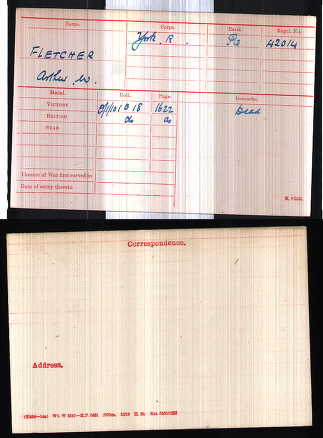 Name. Corps. Rank. Regtl. No.
FLETCHER York. R. Pte 42014
Arthur W.
Medal. Roll. Page. Remarks.
VICTORY B 18 1622 Dead
BRITISH do do
STAR
Theatre of War first served in
Date of entry therein
Correspondence.
Address.